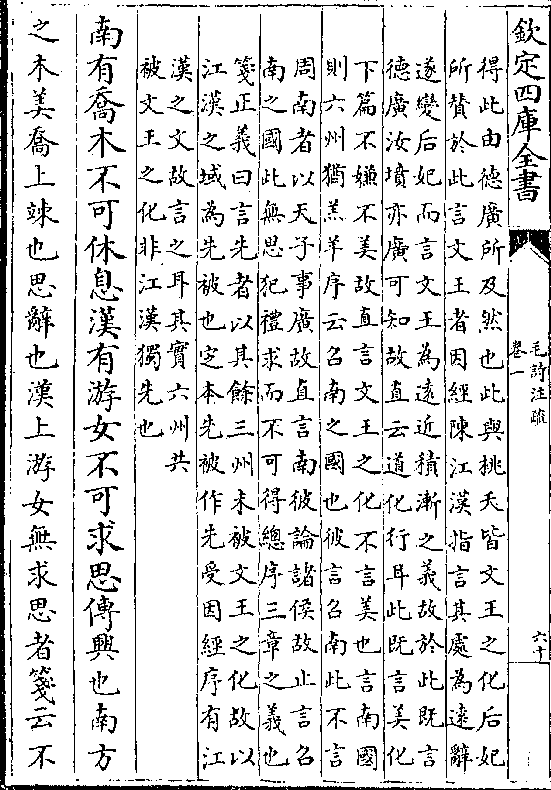 欽定四庫全書
毛詩注疏
卷一
六十
得此由德廣所及然也此與桃夭皆文王之化后妃
所贊於此言文王者因經陳江漢指言其處為遠辭
遂變后妃而言文王為遠近積漸之義故於此既言
德廣汝墳亦廣可知故直云道化行耳此既言美化
下篇不嫌不美故直言文王之化不言美也言南國
則六州猶羔羊序云召南之國也彼言召南此不言
周南者以天子事廣故直言南彼論諸侯故止言召
南之國此無思犯禮求而不可得總序三章之義也
箋正義曰言先者以其餘三州未被文王之化故以
江漢之域為先被也定本先被作先受因經序有江
漢之文故言之耳其實六州共
被文王之化非江漢獨先也
南有喬木不可休息漢有游女不可求思傳興也南方
之木美喬上竦也思辭也漢上游女無求思者箋云不